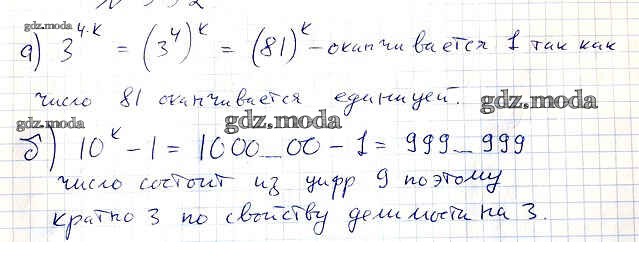 gdz.moda
а) 3^{4·к} = (3^4)^к = (81)^к - оканчивается 1 так как
число 81 оканчивается единицей.
gdz.moda
gdz.moda gdz.moda
б) 10^к - 1 = 1000_00 - 1 = 999_999
число состоит из цифр 9 поэтому
кратно 3 по свойству делимости на 3.